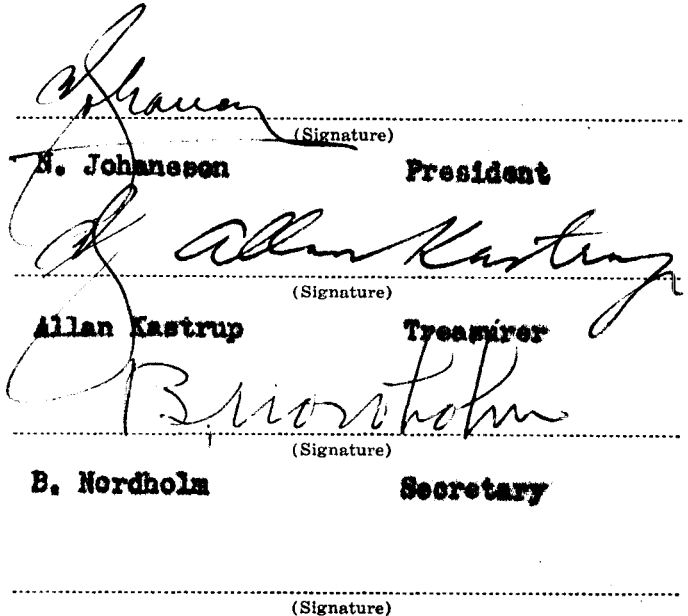 (Signature)
N. Johaneson President
Allan Kastrup
(Signature)
Allan Kastrup Treasurer
B. Nordholm
(Signature)
B. Nordholm Secretary
(Signature)